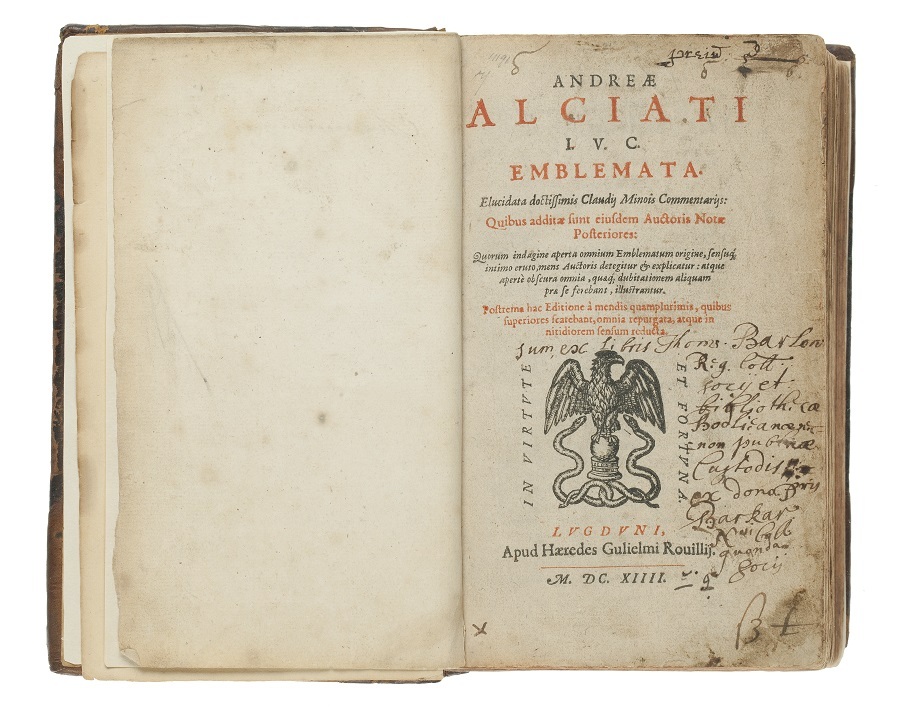 ANDREÆ
ALCIATI
I. V. C.
EMBLEMATA.
Elucidata doctissimis Claudij Minois Commentarijs:
Quibus additæ sunt eiusdem Auctoris Notæ
Posteriores:
Quorum indagine aperta omnium Emblematum origine, sensuq́,
intimo eruto, mens Auctoris detegitur & explicatur: atque
apertè obscura omnia, quæq́, dubitationem aliquam
præ se ferebant, illustrantur.
Postrema hac Editione à mendis quamplurimis, quibus
superiores scatebant, omnia repurgata, atque in
nitidiorem sensum reducta.
sum ex libris Thom. Barlow
Reg. Coll.
socij et
bibliothecæ
Bodlieanæ
non
Custodis
ex dono
Barkar
Coll
quonda
socij
IN VIRTVTE
ET FORTVNA.
LVGDVNI,
Apud Hæredes Gulielmi Rouillij.
M. DC. XIIII.